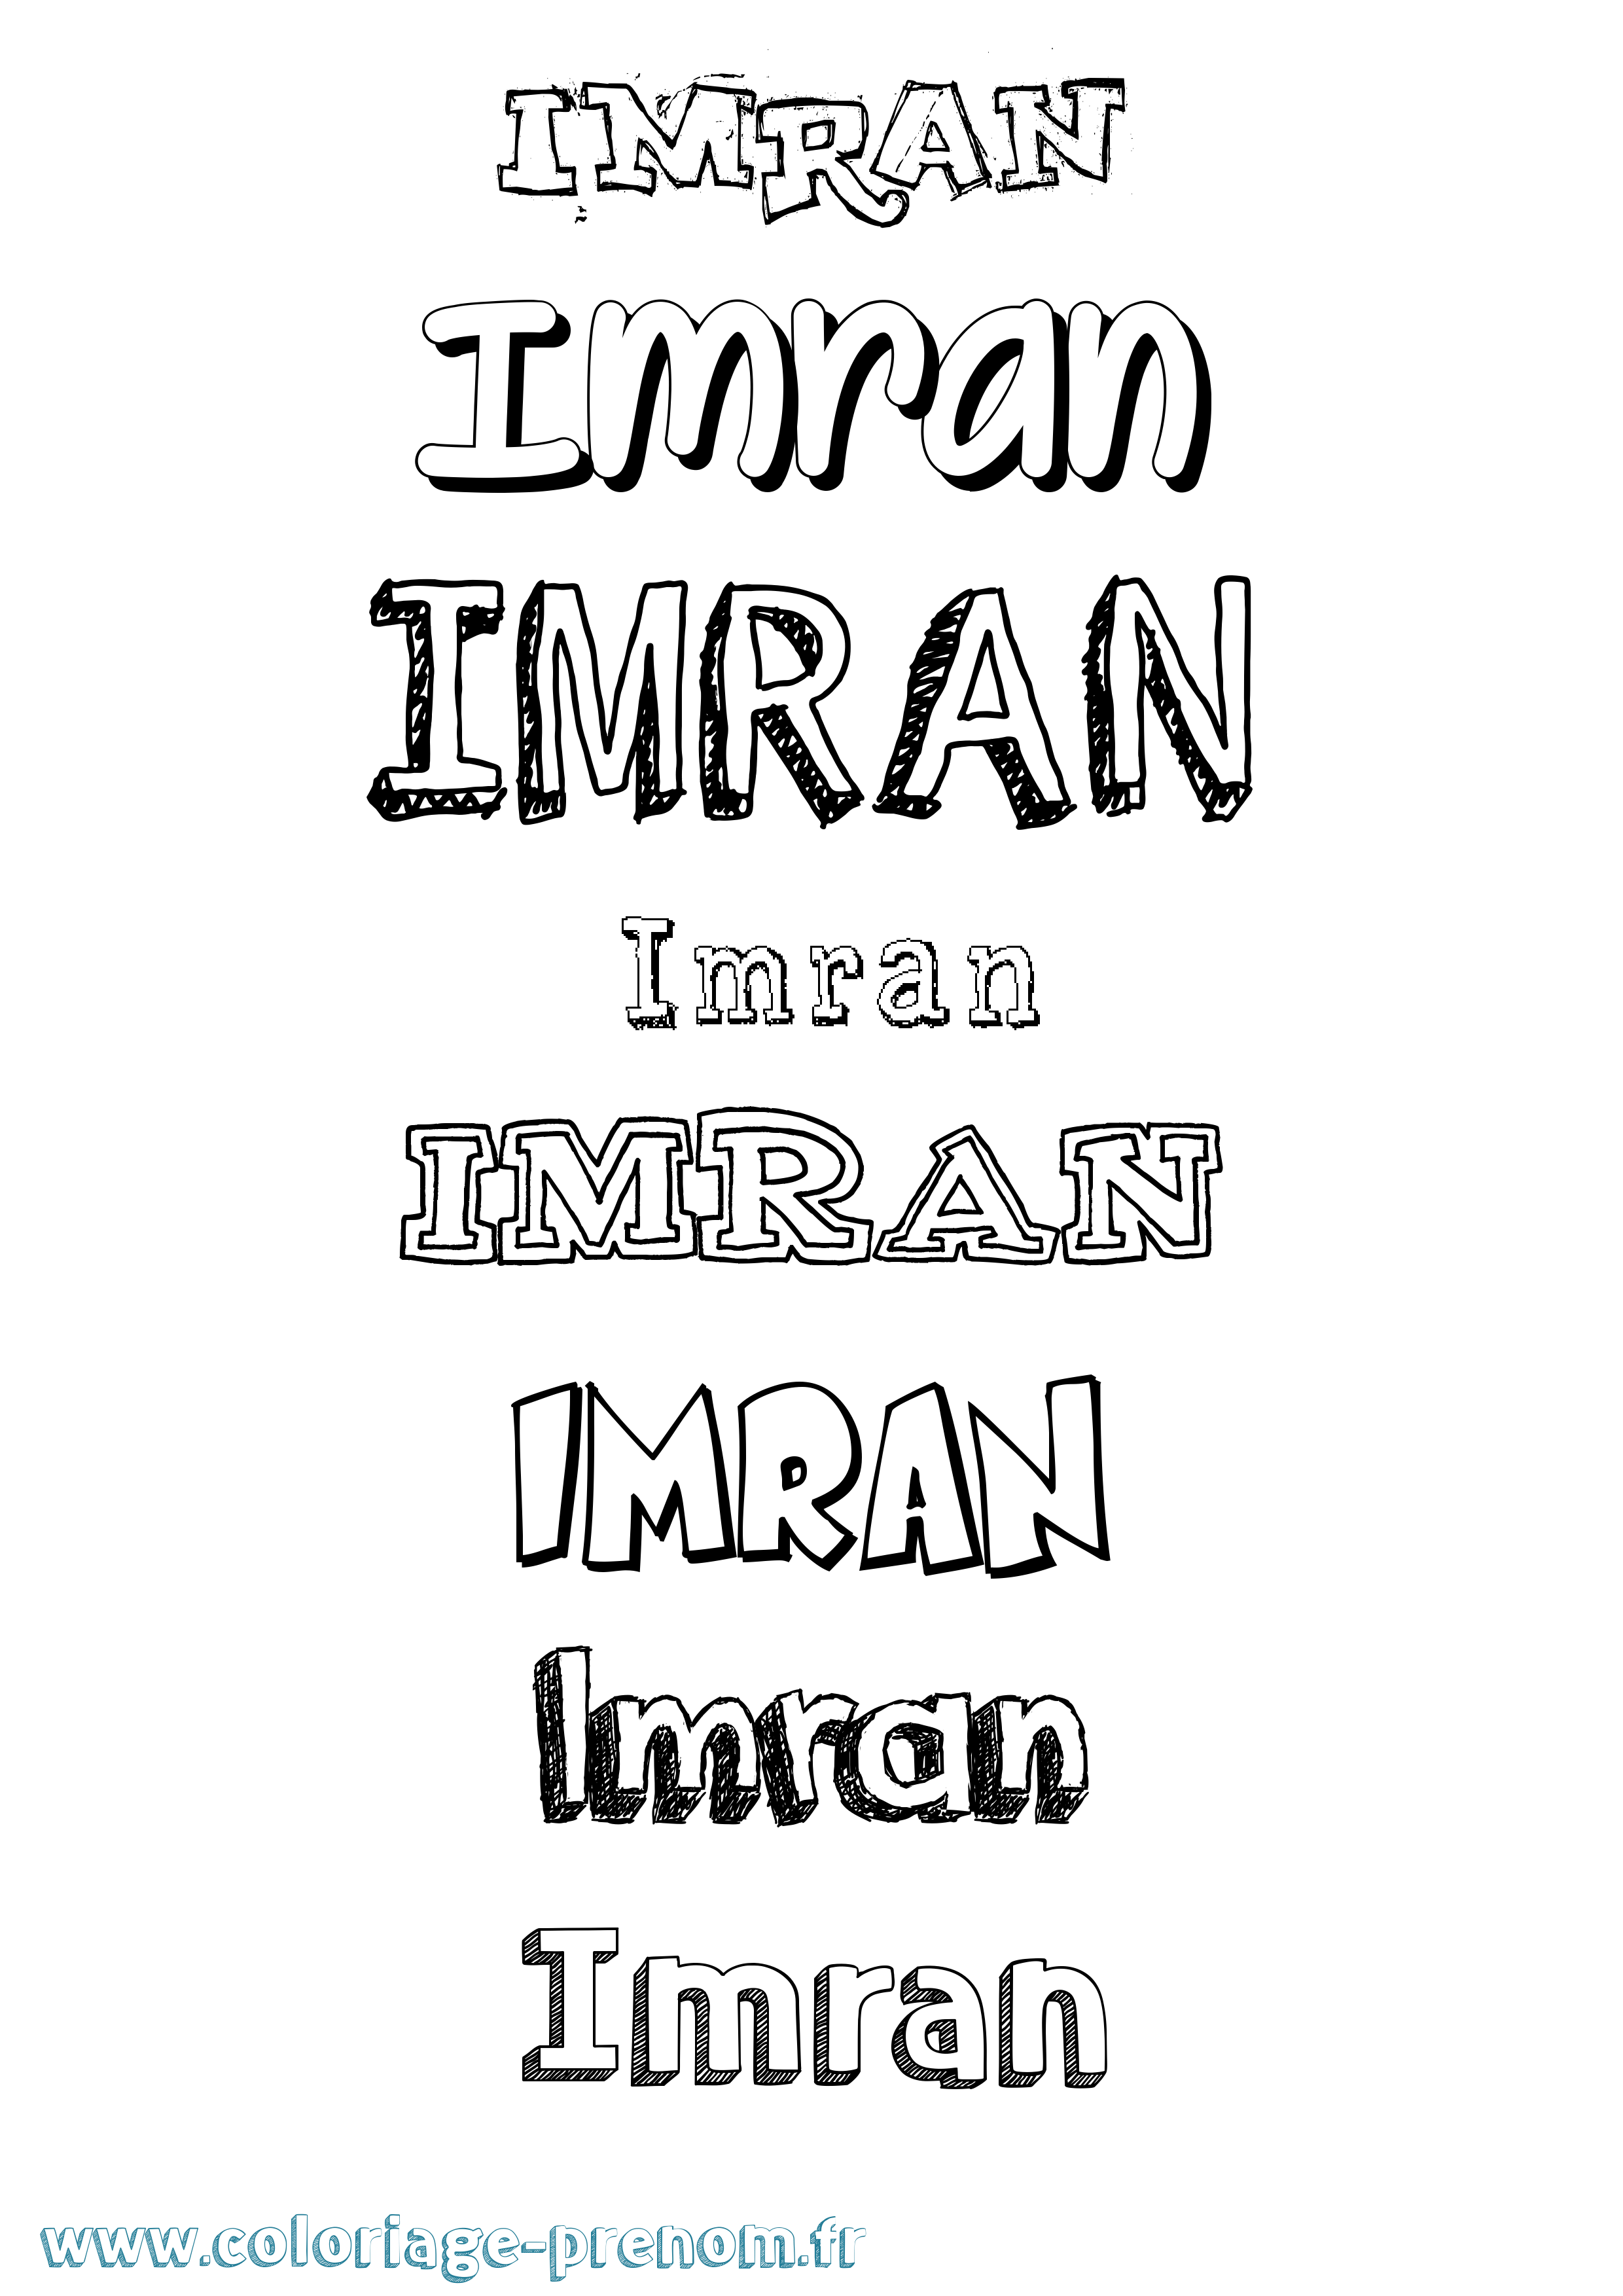 IMRAN
Imran
IMRAN
Imran
IMRAN
IMRAN
Imran
Imran
www.coloriage-prenom.fr